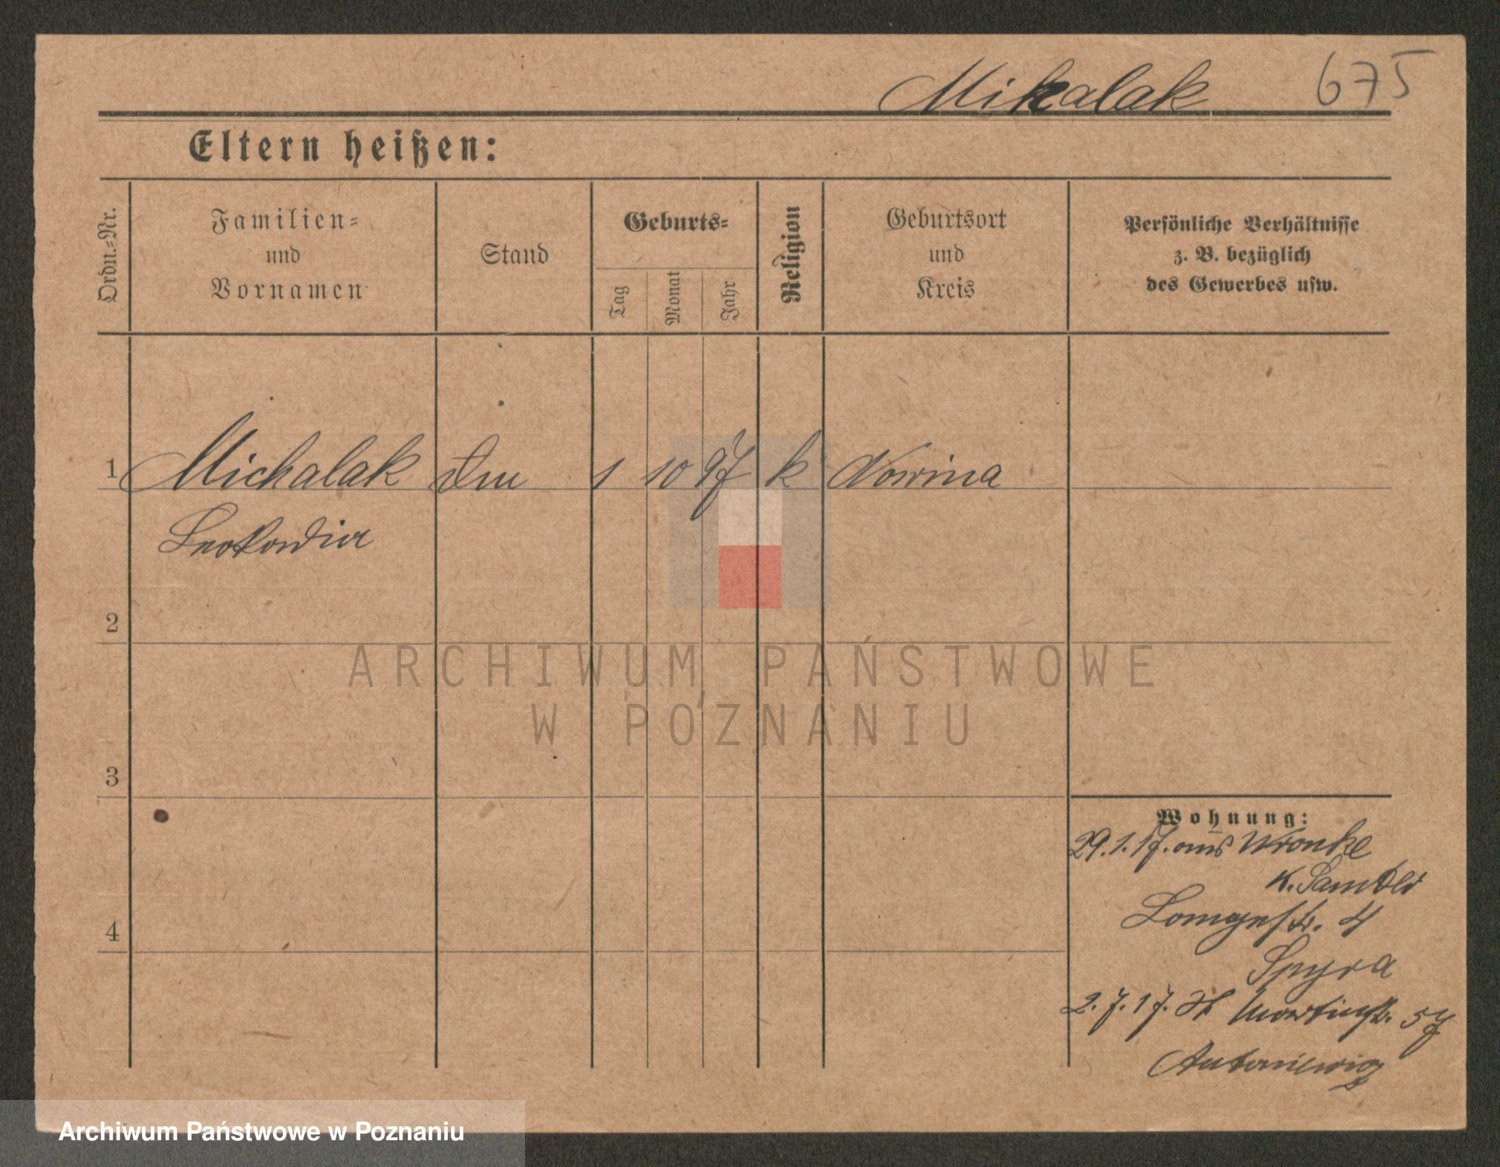 Mikalak 675
Eltern heißen:
Ordn.-Nr.
Familien-
und
Vornamen
Stand
Geburts-
Tag
Monat
Jahr
Religion
Geburtsort
und
Kreis
Persönliche Verhältnisse
z. B. bezüglich
des Gewerbes usw.
1 Michalak 1 10 97 k Nowina
Leokardia
2
ARCHIWUM PAŃSTWOWE
W POZNANIU
3
4
Wohnung:
29.1.17. aus Wronke
K. Samter
4
Spyra
2.7.17. Martinstr. 57
Antoniewicz
Archiwum Państwowe w Poznaniu